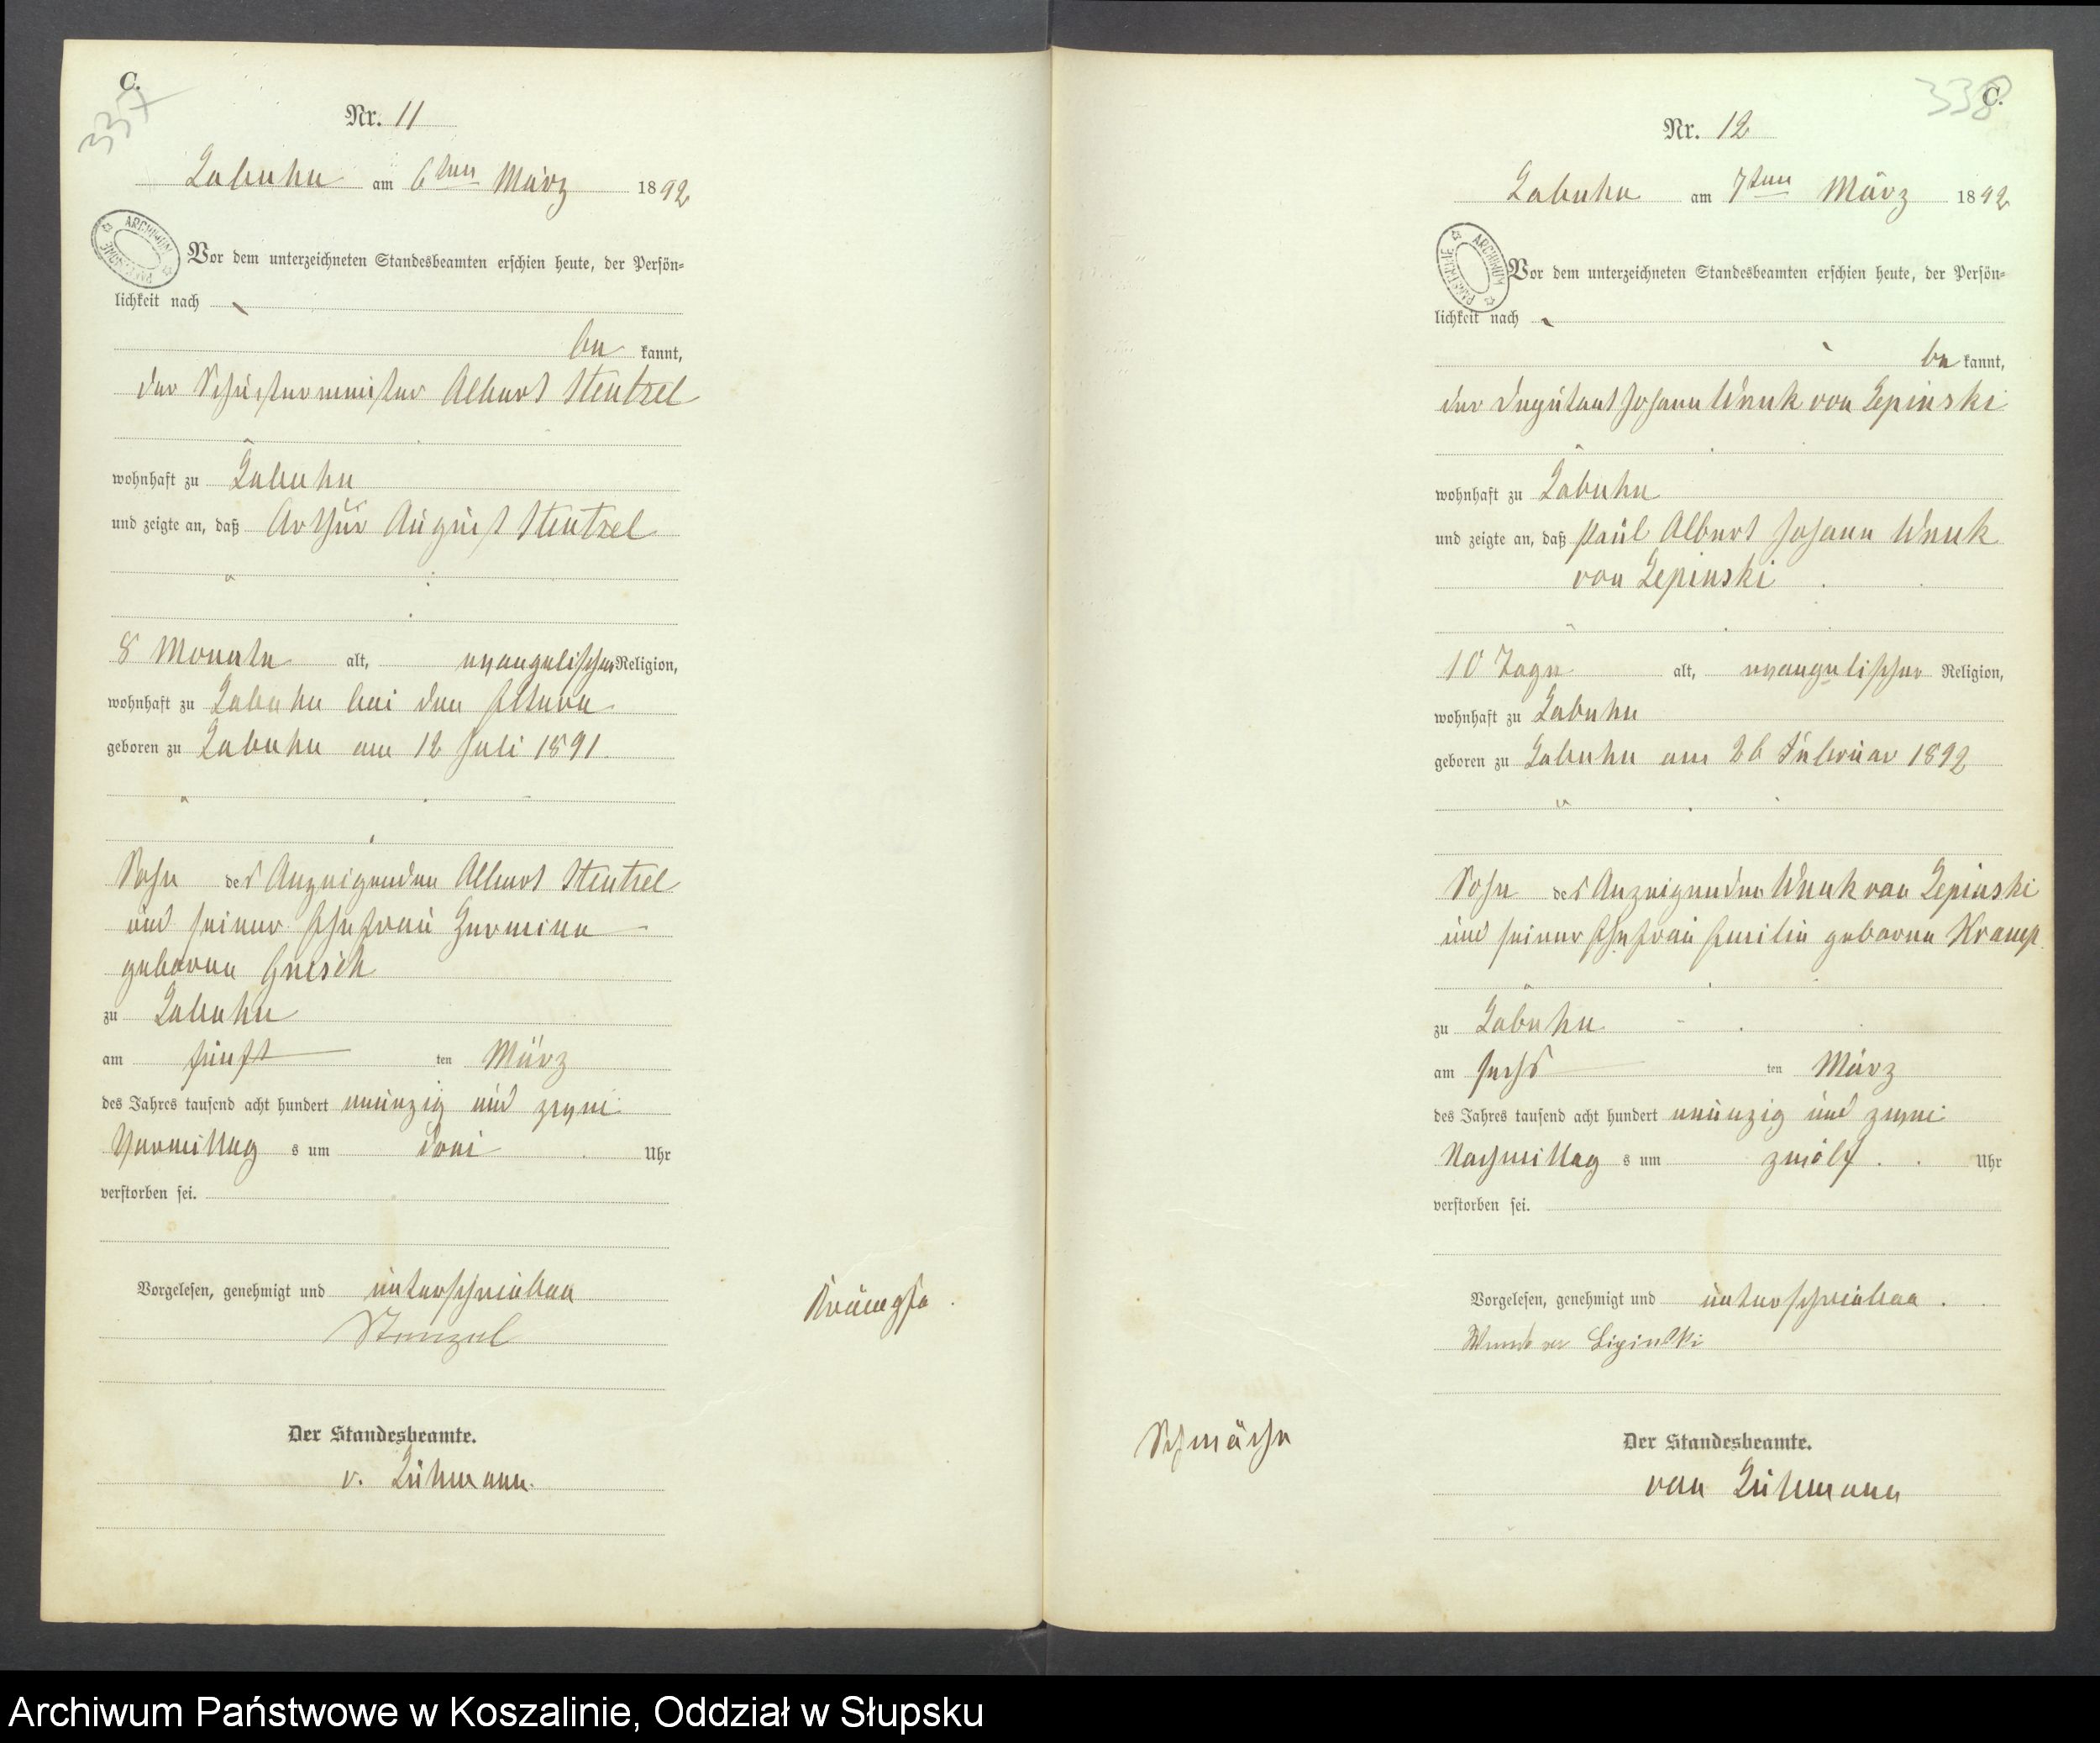 C.
337
Nr. 11
Labuhn am 6ten März 1892
Vor dem unterzeichneten Standesbeamten erschien heute, der Persön-
lichkeit nach
be kannt,
der Schustermeister Albert Stentzel
wohnhaft zu Labuhn
und zeigte an, daß Arthur August Stentzel
8 Monate alt, evangelischer Religion,
wohnhaft zu Labuhn bei den Eltern
geboren zu Labuhn am 12 Juli 1891
Sohn des Anzeigenden Albert Stentzel
und seiner Ehefrau Hermine
geborene
zu Labuhn
am fünft ten März
des Jahres tausend acht hundert neunzig und zwei
Vormittag s um drei Uhr
verstorben sei.
Vorgelesen, genehmigt und unterschrieben
Stenzel
Der Standesbeamte.
v.
Krämpfe
C.
338
Nr. 12
Labuhn am 7ten März 1892
Vor dem unterzeichneten Standesbeamten erschien heute, der Persön-
lichkeit nach
be kannt,
der Deputant Johann Wnuk von Lepinski
wohnhaft zu Labuhn
und zeigte an, daß Paul Albert Johann Wnuk
von Lepinski
10 Tage alt, evangelischer Religion,
wohnhaft zu Labuhn
geboren zu Labuhn am 26 Februar 1892
Sohn des Anzeigenden Wnuk von Lepinski
und seiner Ehefrau Emilie geborene Kramp
zu Labuhn
am sechs ten März
des Jahres tausend acht hundert neunzig und zwei
Nachmittag s um zwölf Uhr
verstorben sei.
Vorgelesen, genehmigt und unterschrieben
Wnuk von Lipinski
Schwäche
Der Standesbeamte.
von
ARCHIWUM PAŃSTWOWE
Archiwum Państwowe w Koszalinie, Oddział w Słupsku